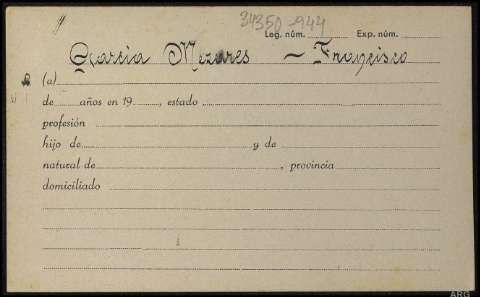 34350 944
Leg. núm. Exp. núm.
Garcia Mezares - Francisco
(a)
de años en 19 , estado
profesión
hijo de y de
natural de , provincia
domiciliado
ARG